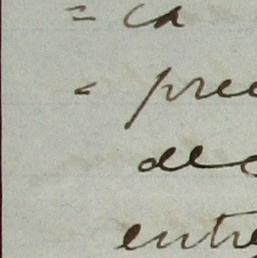 = ca
- prec
dec
entre